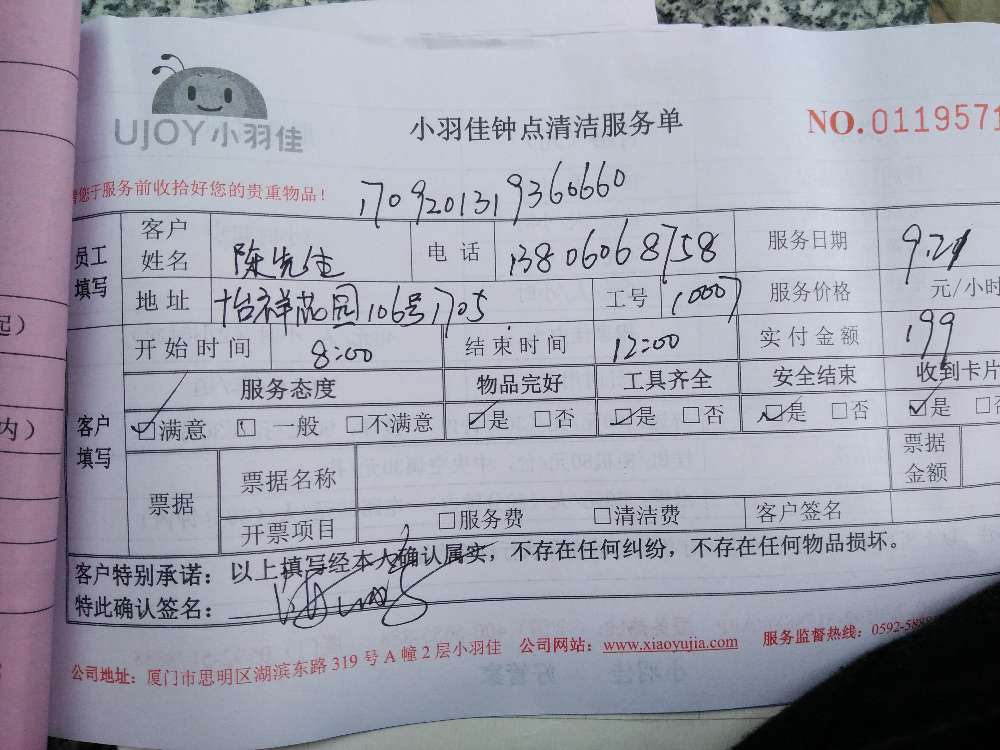 UJOY小羽佳
小羽佳钟点清洁服务单
NO.0119571
您于服务前收拾好您的贵重物品！
1709201319360660
员工填写 客户姓名 陈先生 电话 13806068758 服务日期 9.21
地址 怡祥花园106号1705 工号 10007 服务价格 元/小时
开始时间 8:00 结束时间 12:00 实付金额 199
客户填写 服务态度 物品完好 工具齐全 安全结束 收到卡片
☑满意 □一般 □不满意 ☑是 □否 ☑是 □否 ☑是 □否 ☑是
票据 票据名称 票据金额
开票项目 □服务费 □清洁费 客户签名
客户特别承诺：以上填写经本人确认属实，不存在任何纠纷，不存在任何物品损坏。
特此确认签名：
公司地址：厦门市思明区湖滨东路319号A幢2层小羽佳 公司网站：www.xiaoyujia.com 服务监督热线：0592-588
起）
内）